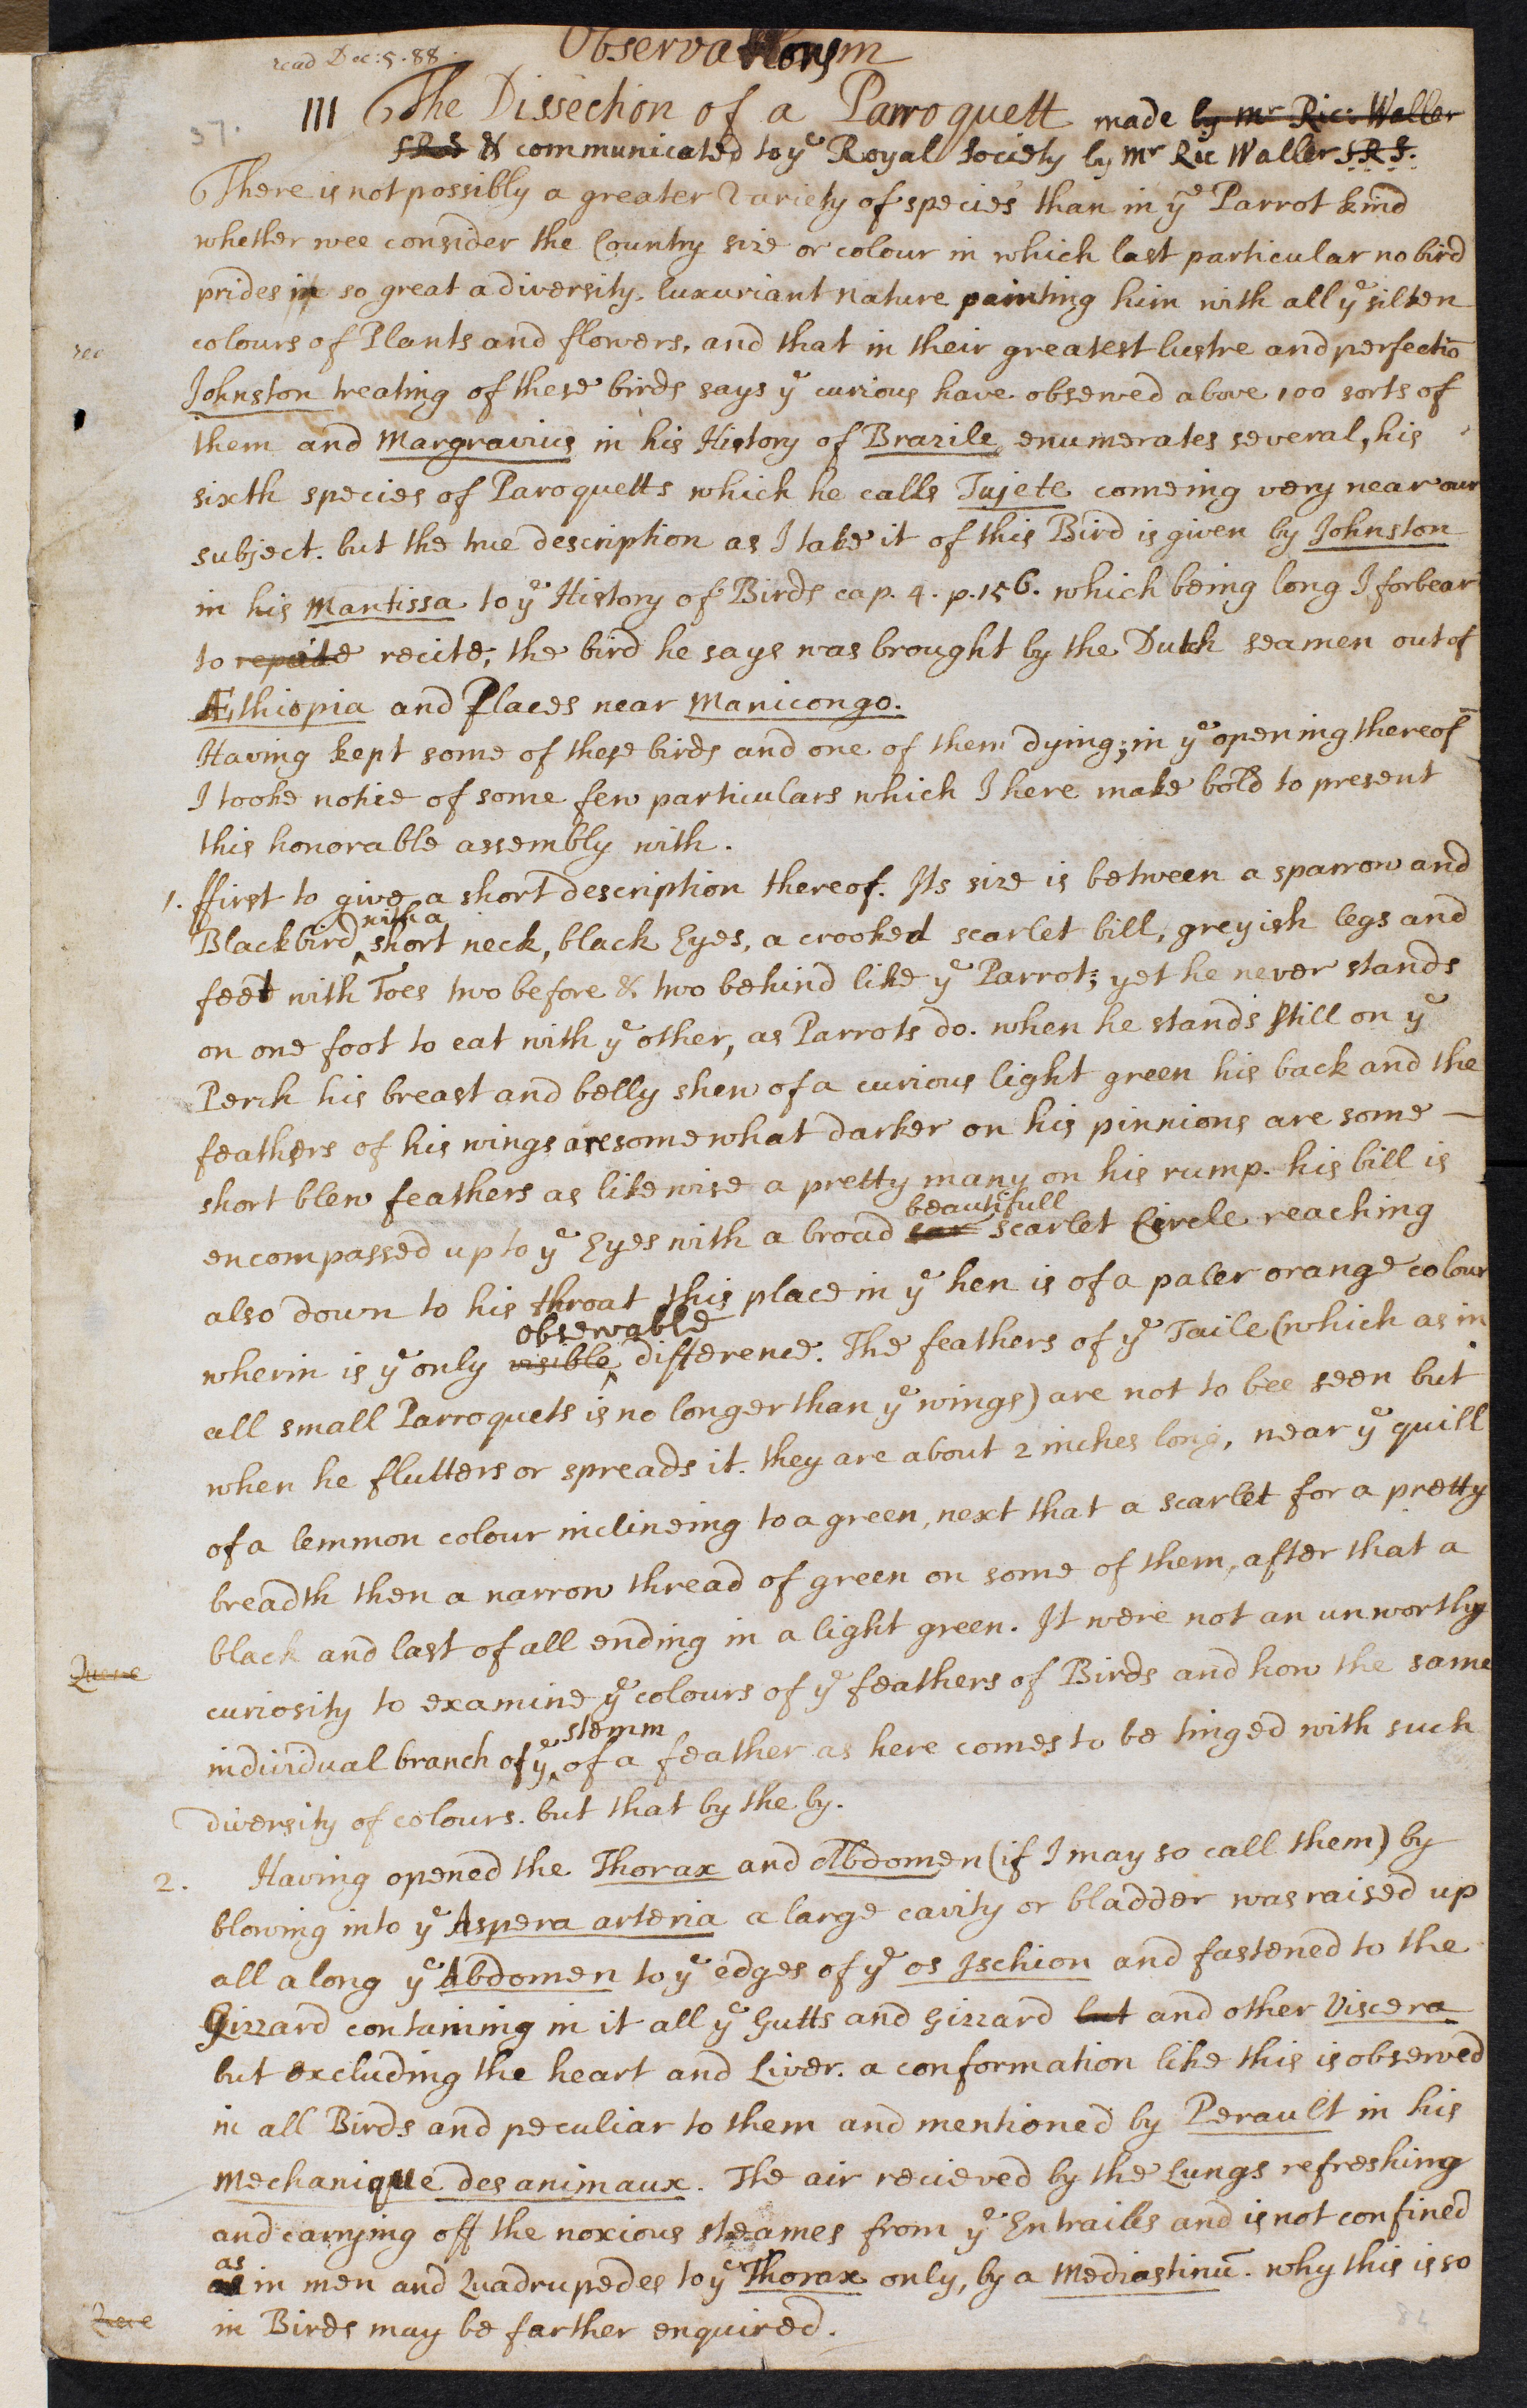 read Dec: 5. 88.
Observations in
37.
III The Dissection of a Parroquett made by Mr Ric: Waller
SRS & communicated to ye Royal Society by Mr Ric Waller S.R.S.
There is not possibly a greater Variety of species than in ye Parrot kind
whether wee consider the Country size or colour in which last particular no bird
prides in so great a diversity. luxuriant nature painting him with all ye silken
colours of Plants and flowers, and that in their greatest lustre and perfectiō
Johnston treating of these birds says ye curious have observed above 100 sorts of
them and Margravius in his History of Brazile enumerates several, his
sixth species of Paroquetts which he calls Tujete comeing very near our
subject. but the true description as I take it of this Bird is given by Johnston
in his Mantissa to ye History of Birds cap. 4. p. 156. which being long I forbear
to repeite recite, the bird he says was brought by the Dutch seamen out of
Æthiopia and Places near Manicongo.
Having kept some of these birds and one of them dying; in ye opening thereof
I tooke notice of some few particulars which I here make bold to present
this honorable assembly with.
1. ffirst to give a short description thereof. Its size is between a sparrow and
Blackbird with a short neck, black Eyes, a crooked scarlet bill, greyish legs and
feet with Toes two before & two behind like ye Parrot; yet he never stands
on one foot to eat with ye other, as Parrots do. when he stands still on ye
Perch his breast and belly shew of a curious light green his back and the
feathers of his wings are somewhat darker on his pinnions are some
short blew feathers as likewise a pretty many on his rump. his bill is
encompassed up to ye Eyes with a broad scar beautifull scarlet Circle reaching
also down to his throat this place in ye hen is of a paler orange colour
wherin is ye only visible observable difference. The feathers of ye Taile (which as in
all small Parroquets is no longer than ye wings) are not to bee seen but
when he flutters or spreads it. they are about 2 inches long, near ye quill
of a lemmon colour inclineing to a green, next that a scarlet for a pretty
breadth then a narrow thread of green on some of them, after that a
black and last of all ending in a light green. It were not an unworthy
Quere
curiosity to examine ye colours of ye feathers of Birds and how the same
individual branch of ye stemm of a feather as here comes to be tinged with such
diversity of colours. but that by the by.
2. Having opened the Thorax and Abdomen (if I may so call them) by
blowing into ye Aspera arteria a large cavity or bladder was raised up
all along ye Abdomen to ye edges of ye os Ischion and fastened to the
Gizzard containing in it all ye Gutts and Gizzard but and other Viscera
but excluding the heart and Liver. a conformation like this is observed
in all Birds and peculiar to them and mentioned by Perault in his
Mechanique des animaux. The air recieved by the Lungs refreshing
and carrying off the noxious steames from ye Entrailes and is not confined
as in men and Quadrupedes to ye Thorax only, by a Mediastinū. why this is so
Quere
in Birds may be farther enquired.